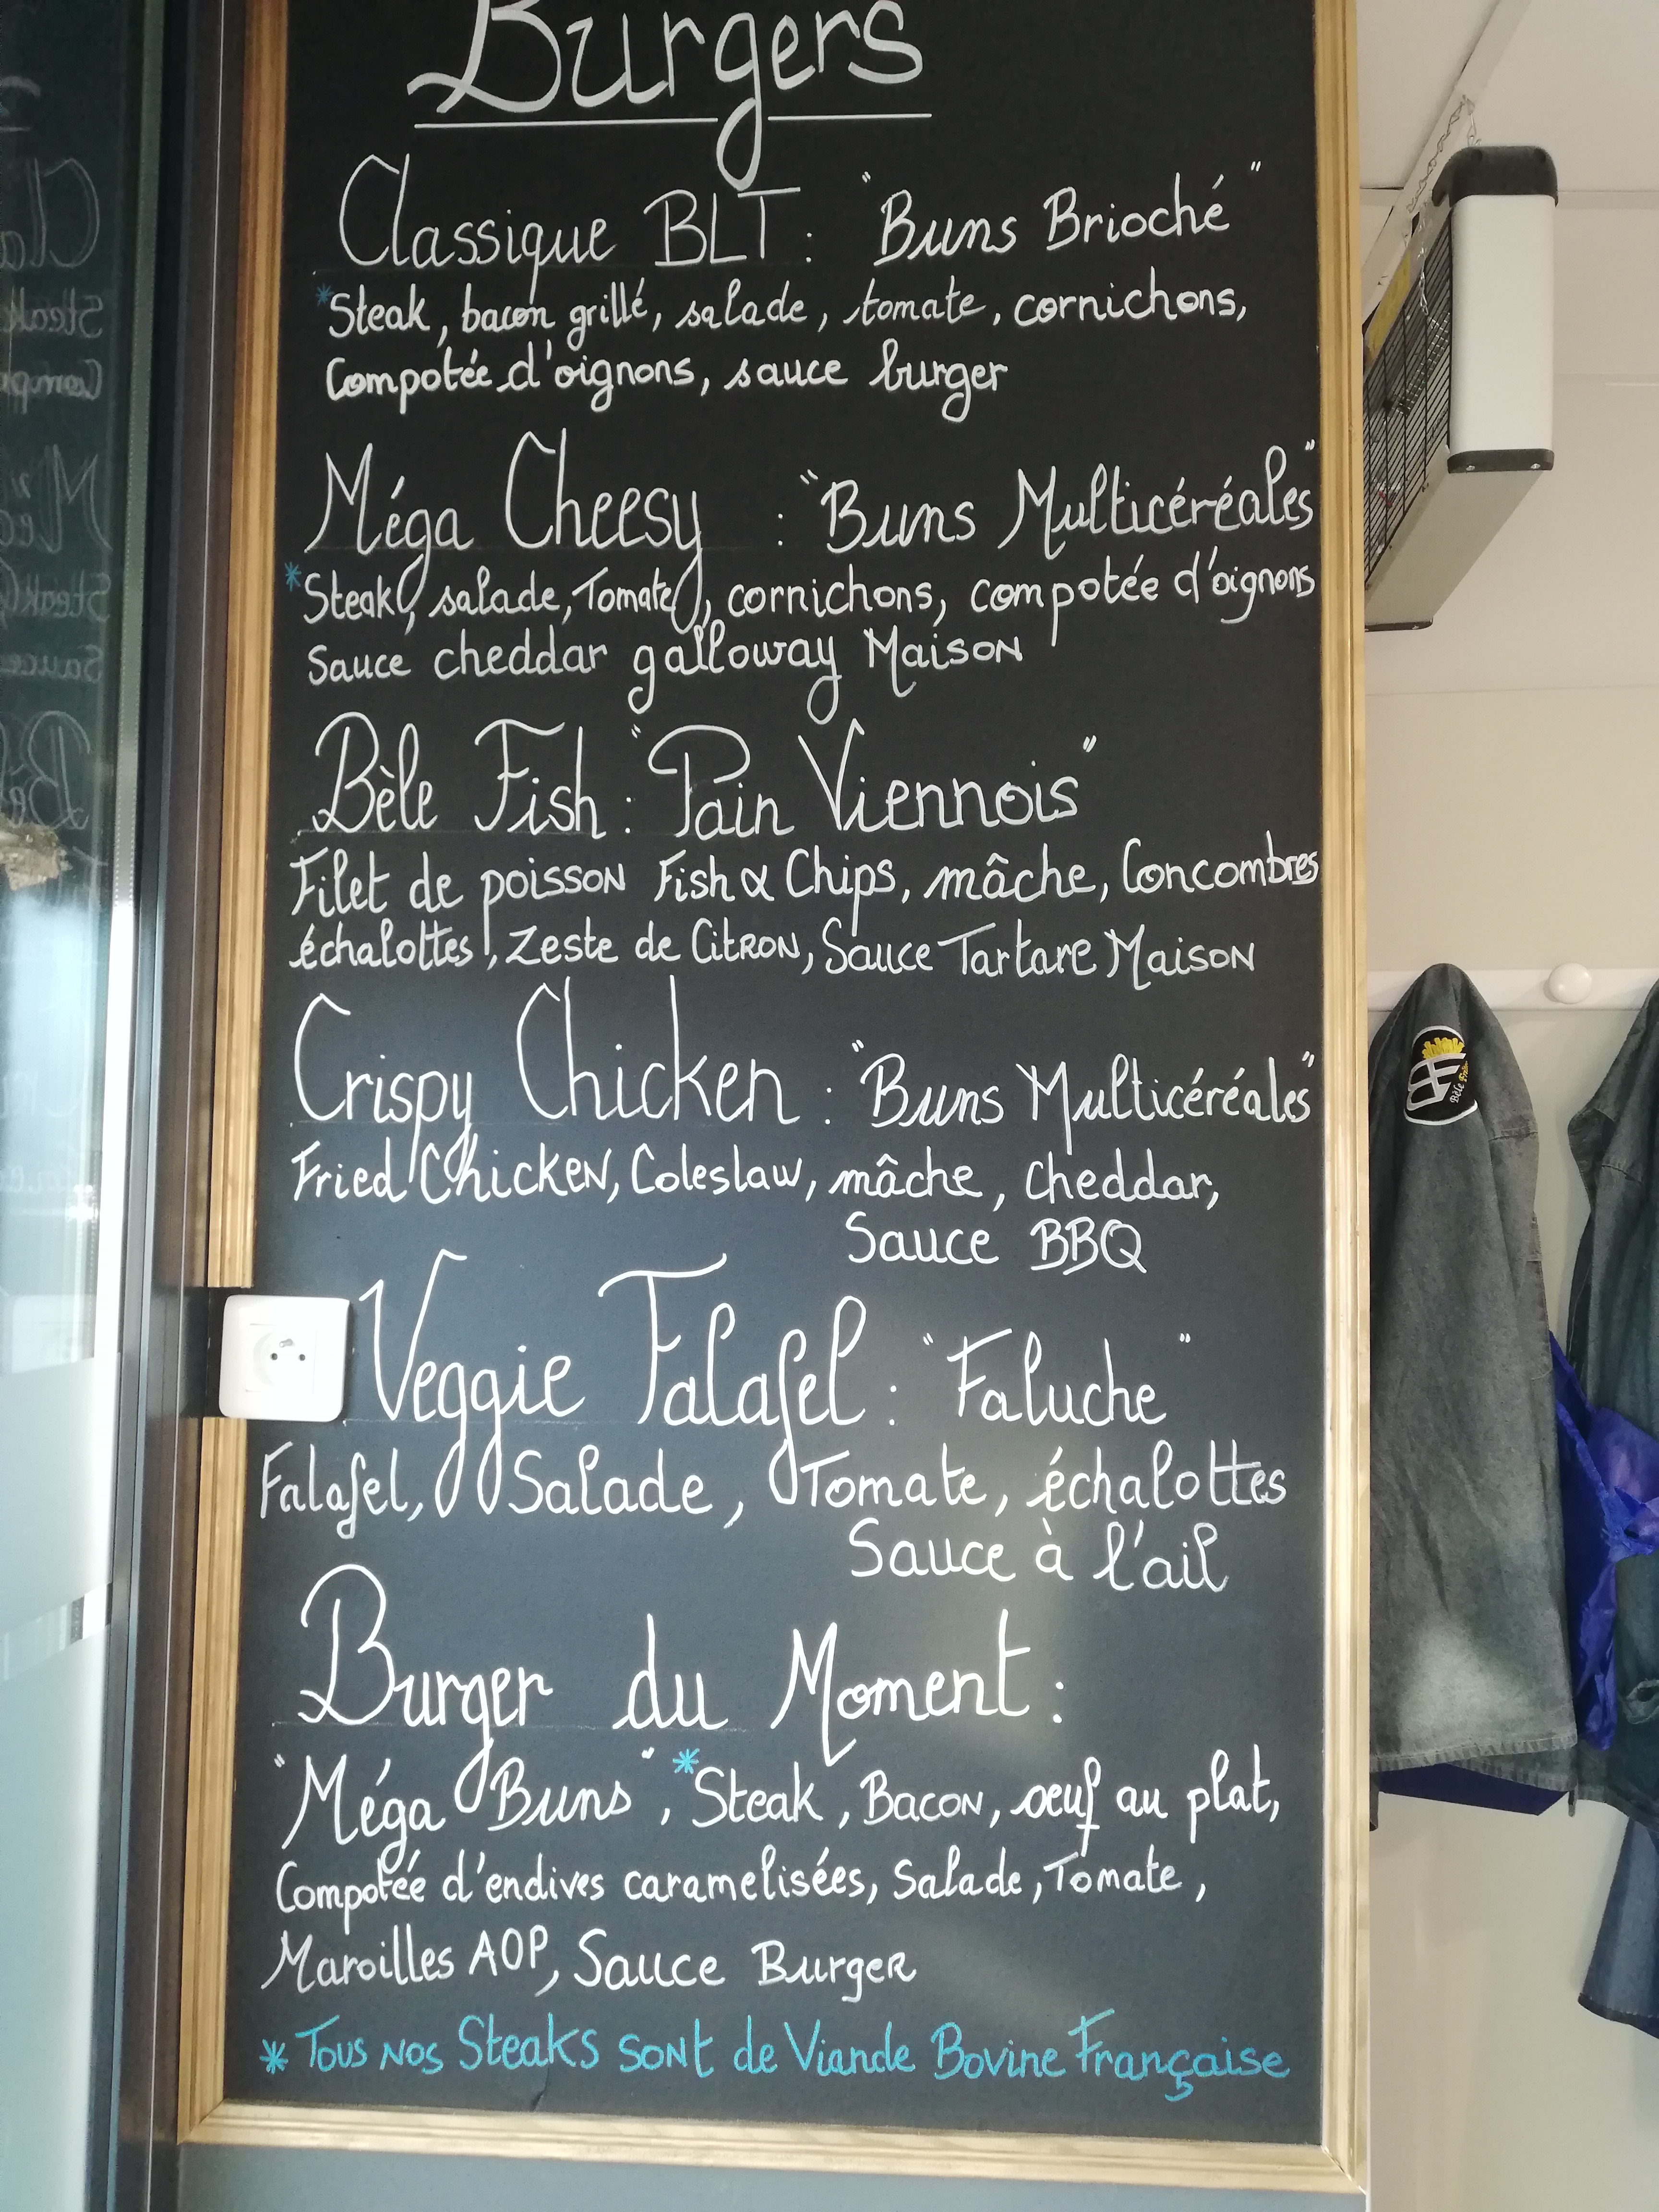 Burgers
Classique BLT : "Buns Brioché"
*Steak, bacon grillé, salade, tomate, cornichons,
Compotée d'oignons, sauce burger
Méga Cheesy : "Buns Multicéréales"
*Steak, salade, Tomate, cornichons, compotée d'oignons
Sauce cheddar galloway Maison
Bèle Fish : "Pain Viennois"
Filet de poisson Fish & Chips, mâche, Concombres
échalottes, Zeste de Citron, Sauce Tartare Maison
Crispy Chicken : "Buns Multicéréales"
Fried Chicken, Coleslaw, mâche, cheddar,
Sauce BBQ
Veggie Falafel : "Faluche"
Falafel, Salade, Tomate, échalottes
Sauce à l'ail
Burger du Moment :
"Méga Buns", *Steak, Bacon, oeuf au plat,
Compotée d'endives caramelisées, Salade, Tomate,
Maroilles AOP, Sauce Burger
* Tous nos Steaks sont de Viande Bovine Française
BF